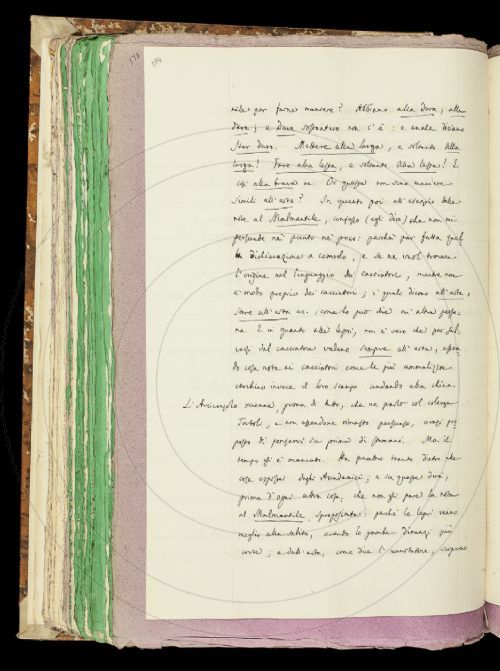 384
nile per farne maniere? Abbiamo alla dura, alla
dura; e Dura sostantivo non c'è: e anche diciamo
star duro. Mettere alla larga, e soltanto alla
larga! Fare alla lesta, e soltanto Alla lesta! E
così alla brava ec. Or queste non sono maniere
simili all'asta? In quanto poi all'esempio
al Malmantile, confesso (egli dice) che non mi
persuade né punto né poco: perché par fatta quel
dichiarazione a comodo, e se ne vuol trovare
l'origine nel linguaggio dei cacciatori, mentre non
è modo proprio dei cacciatori; i quali dicono all'asta,
stare all'asta ec., come lo può dire ogni altra perso-
na. E in quanto alle lepri, non è vero che per sal-
varsi dal cacciatore vadano sempre all'erta, essen-
do cosa nota ai cacciatori come le più
cerchino invece il loro scampo andando alla china.
L'Arciconsolo accenna, prima di tutto, che ne parlò col collega
Tortoli; e non essendone rimasto persuaso, avea pro-
posto di pensarvi su prima di stamani. Ma il
tempo gli è mancato. Ha peraltro tenuto dietro alle
cose esposte dagli Accademici; e su queste dirà,
prima d'ogni altra cosa, che non gli pare la nota
al Malmantile spropositata: perché le lepri vanno
meglio alla salita, avendo le gambe dinanzi più
corte; e dall'asta, come dice l'annotatore, scoprono